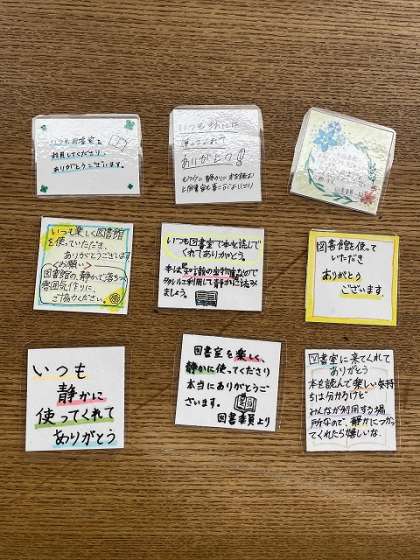 いつも図書室を
利用してくださり、
ありがとうございます。
いつも
ありがとう
いつも楽しく図書館
を使っていただき、
ありがとうございます
<お願い>
図書館の、静かで落ちつく
雰囲気作りに、
ご協力ください。
いつも図書室で本を読んで
くれてありがとう。
本は知識の宝物庫なので
静かに読み
ましょう。
図書館を使って
いただき
ありがとう
ございます
いつも
静かに
使ってくれて
ありがとう
図書室を楽しく、
静かに使ってくださり
本当にありがとうご
ざいます。
図書委員より
図書室に来てくれて
ありがとう
本を読んで楽しい気持
ちは分かるけど
みんなが利用する場
所なので、静かにつかっ
てくれたら嬉しいな。